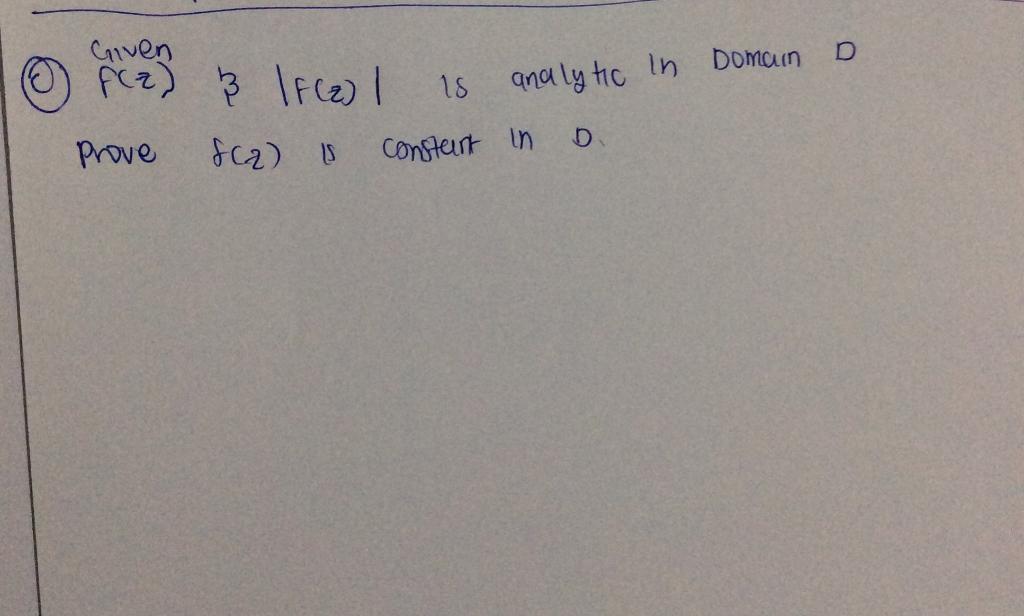 Given
f(z) & |f(z)| is analytic in Domain D
Prove f(z) is constant in D.